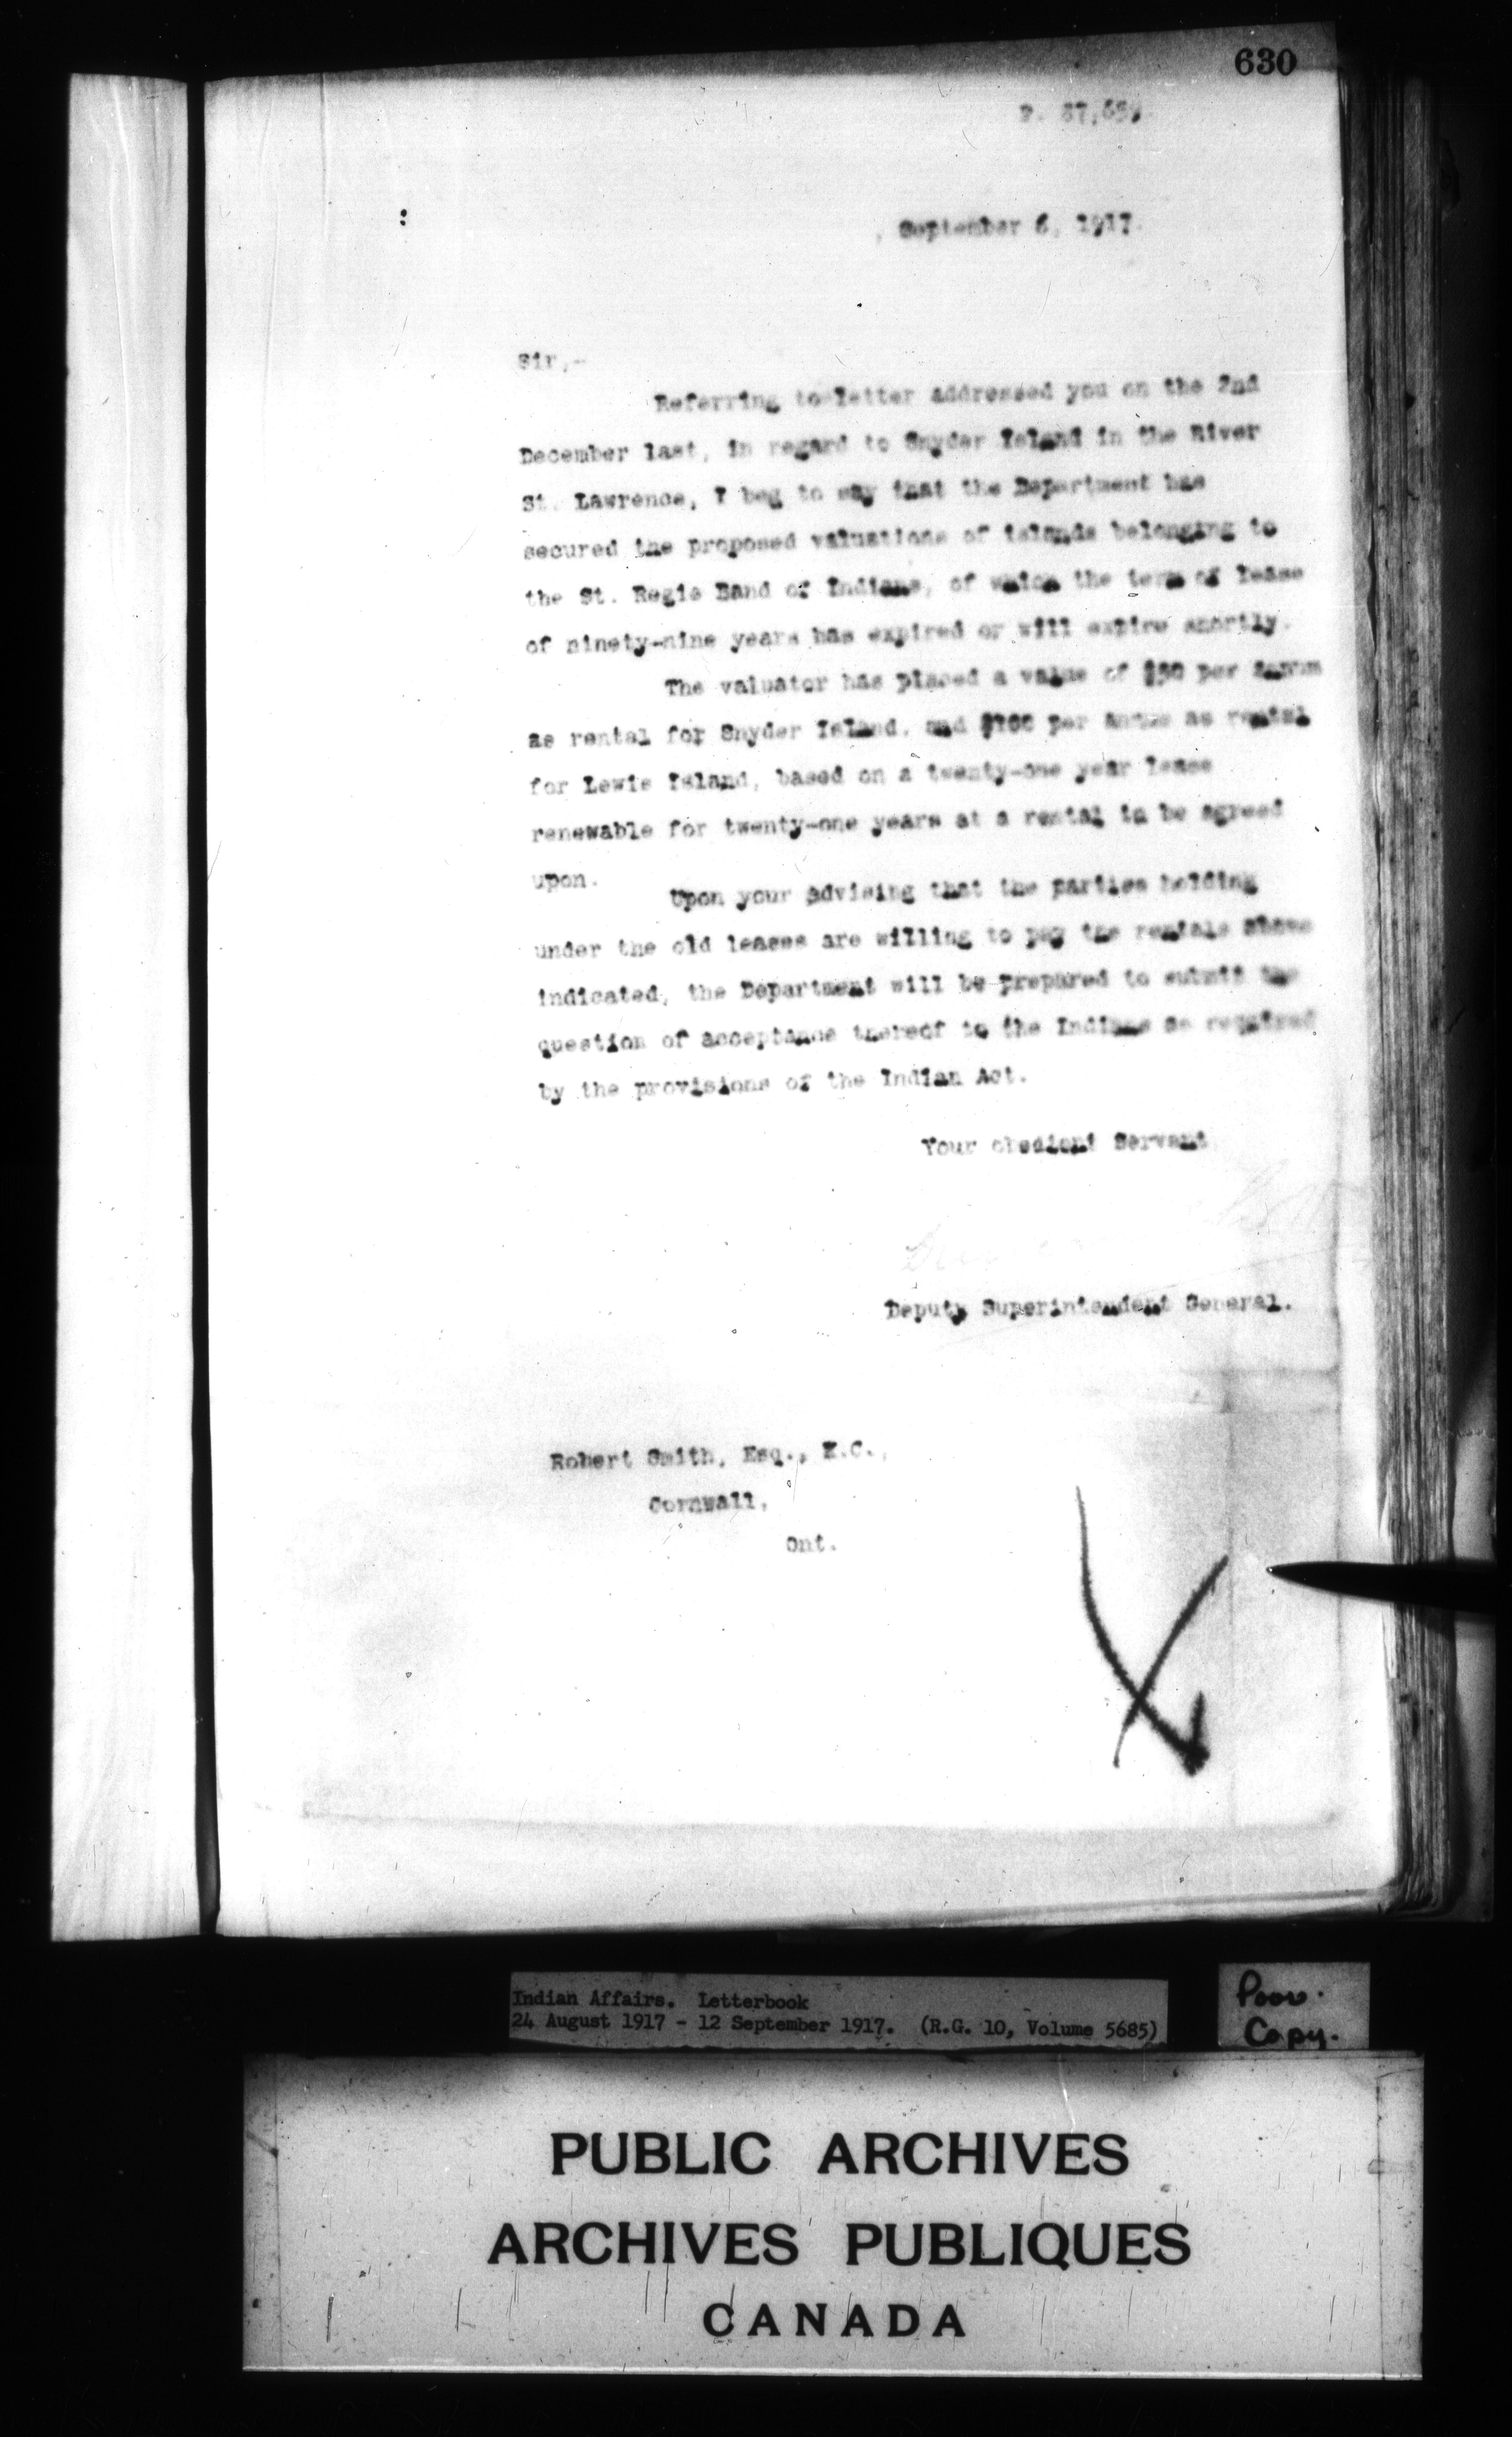 630
September 6, 1917.
Sir,-
Referring to letter addressed you on the 2nd
December last, in regard to Snyder Island in the River
St. Lawrence, I beg to say that the Department has
secured the proposed valuations of islands belonging to
the St. Regis Band of Indians, of which the term of lease
of ninety-nine years has expired or will expire shortly.
The valuator has placed a value of per annum
as rental for Snyder Island, and $100 per annum as rental
for Lewis Island, based on a twenty-one year lease
renewable for twenty-one years at a rental to be agreed
upon.
Upon your advising that the parties holding
under the old leases are willing to pay the rentals above
indicated, the Department will be prepared to submit the
question of acceptance thereof to the Indians as required
by the provisions of the Indian Act.
Your obedient Servant
Deputy Superintendent General.
Robert Smith, Esq., K.C.,
Cornwall,
Ont.
Indian Affairs. Letterbook
24 August 1917 - 12 September 1917. (R.G. 10, Volume 5685)
Poor
Copy.
PUBLIC ARCHIVES
ARCHIVES PUBLIQUES
CANADA